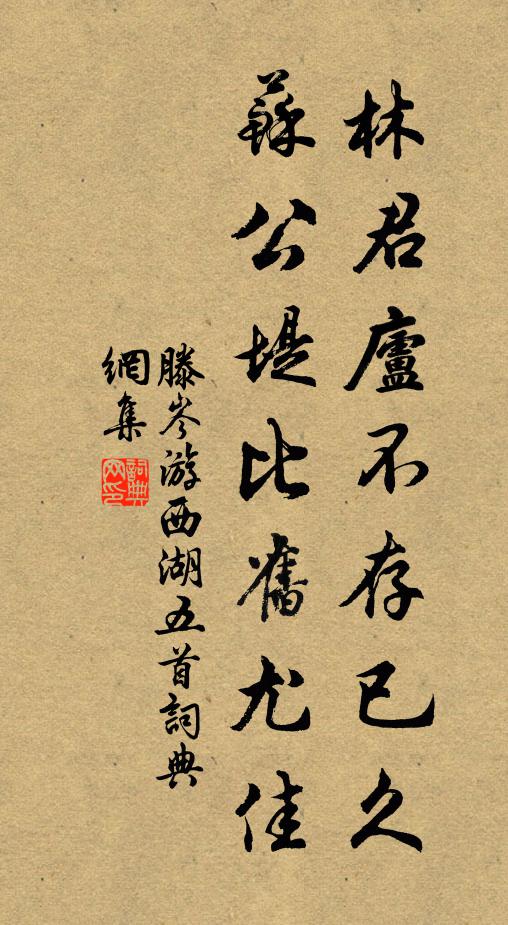 林君廬不存已久
蘇公堤比舊尤佳
滕岑游西湖五首詞典
網集
詞典
網印